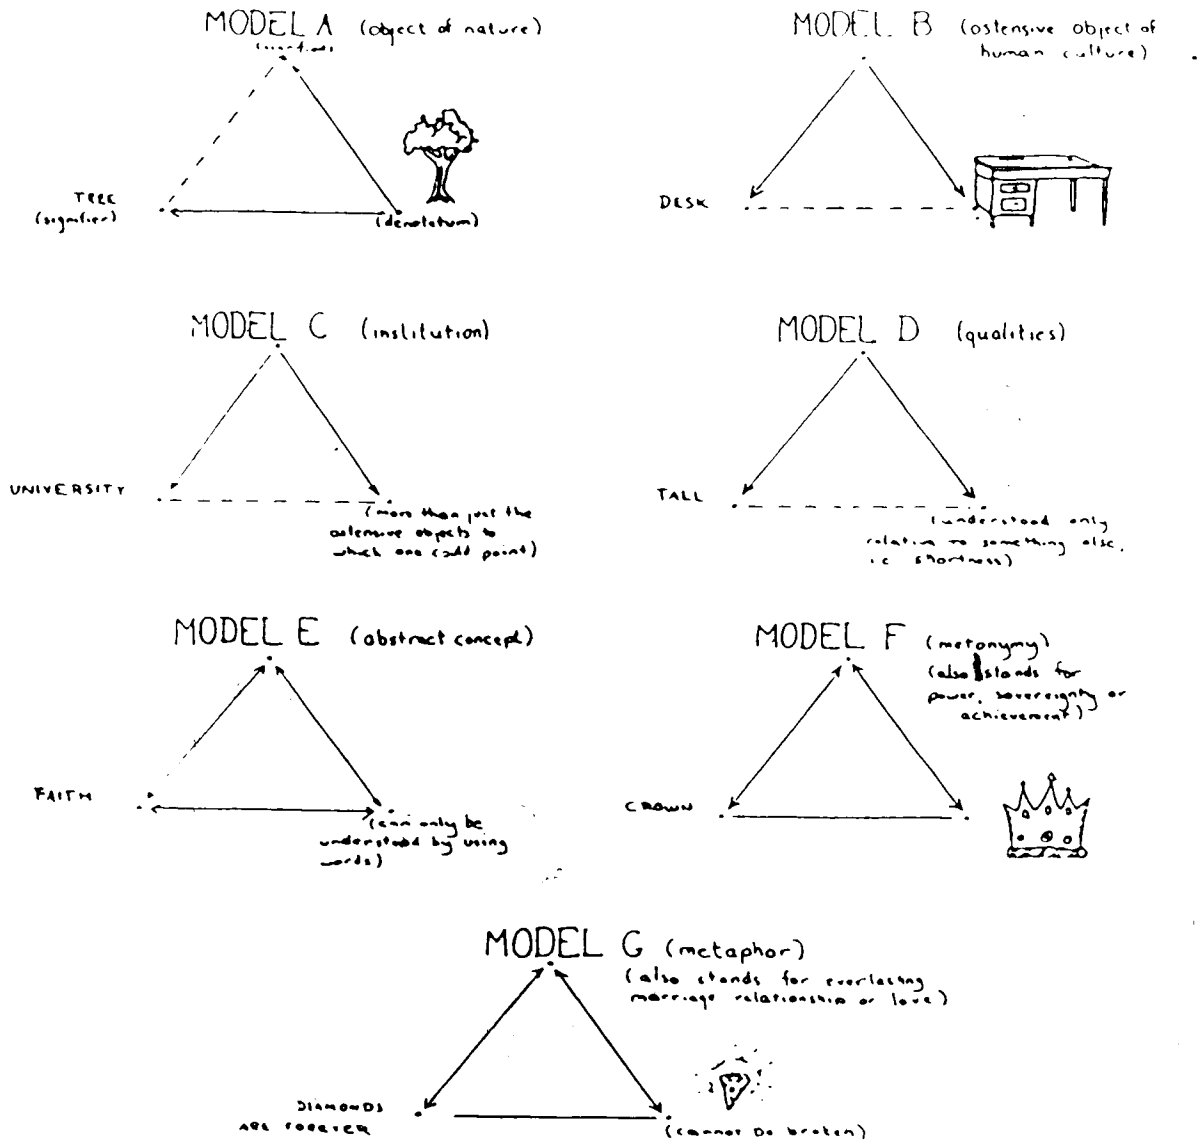 MODEL A (object of nature)
TREE
(signifier)
(denotatum)
MODEL B (ostensive object of
human culture)
DESK
MODEL C (institution)
UNIVERSITY
(more than just the
ostensive objects to
which one could point)
MODEL D (qualities)
TALL
(understood only
relative to something else,
i.e. shortness)
MODEL E (abstract concept)
FAITH
(can only be
understood by using
words)
MODEL F (metonymy)
(also stands for
power, sovereignty or
achievement)
CROWN
MODEL G (metaphor)
(also stands for everlasting
marriage relationship or love)
DIAMONDS
ARE FOREVER
(cannot be broken)